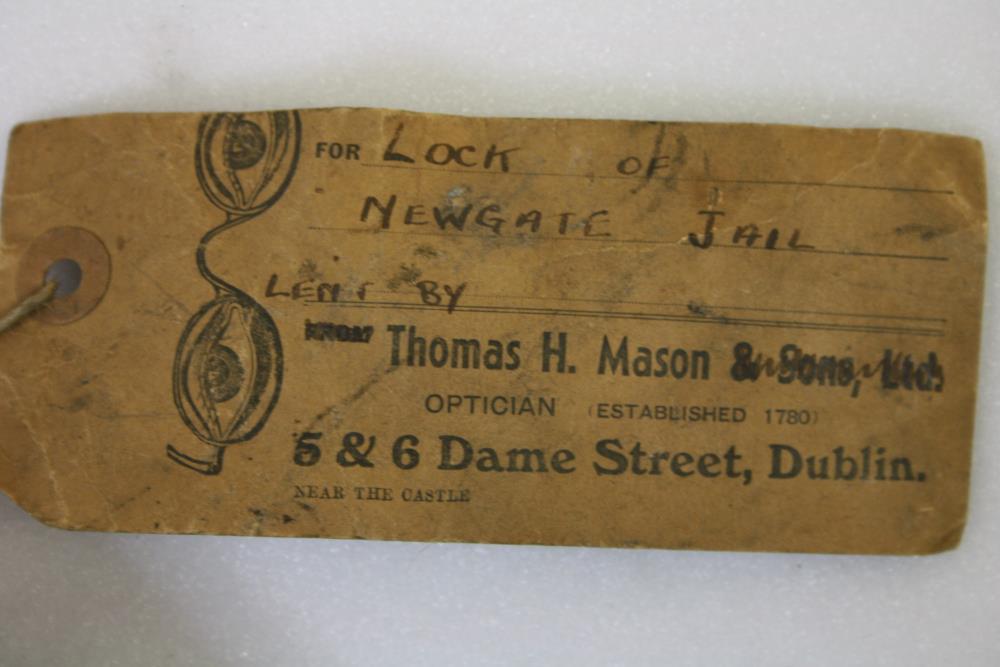 FOR LOCK OF
NEWGATE JAIL
LENT BY
Thomas H. Mason & Sons, Ltd.
OPTICIAN (ESTABLISHED 1780)
5 & 6 Dame Street, Dublin.
NEAR THE CASTLE